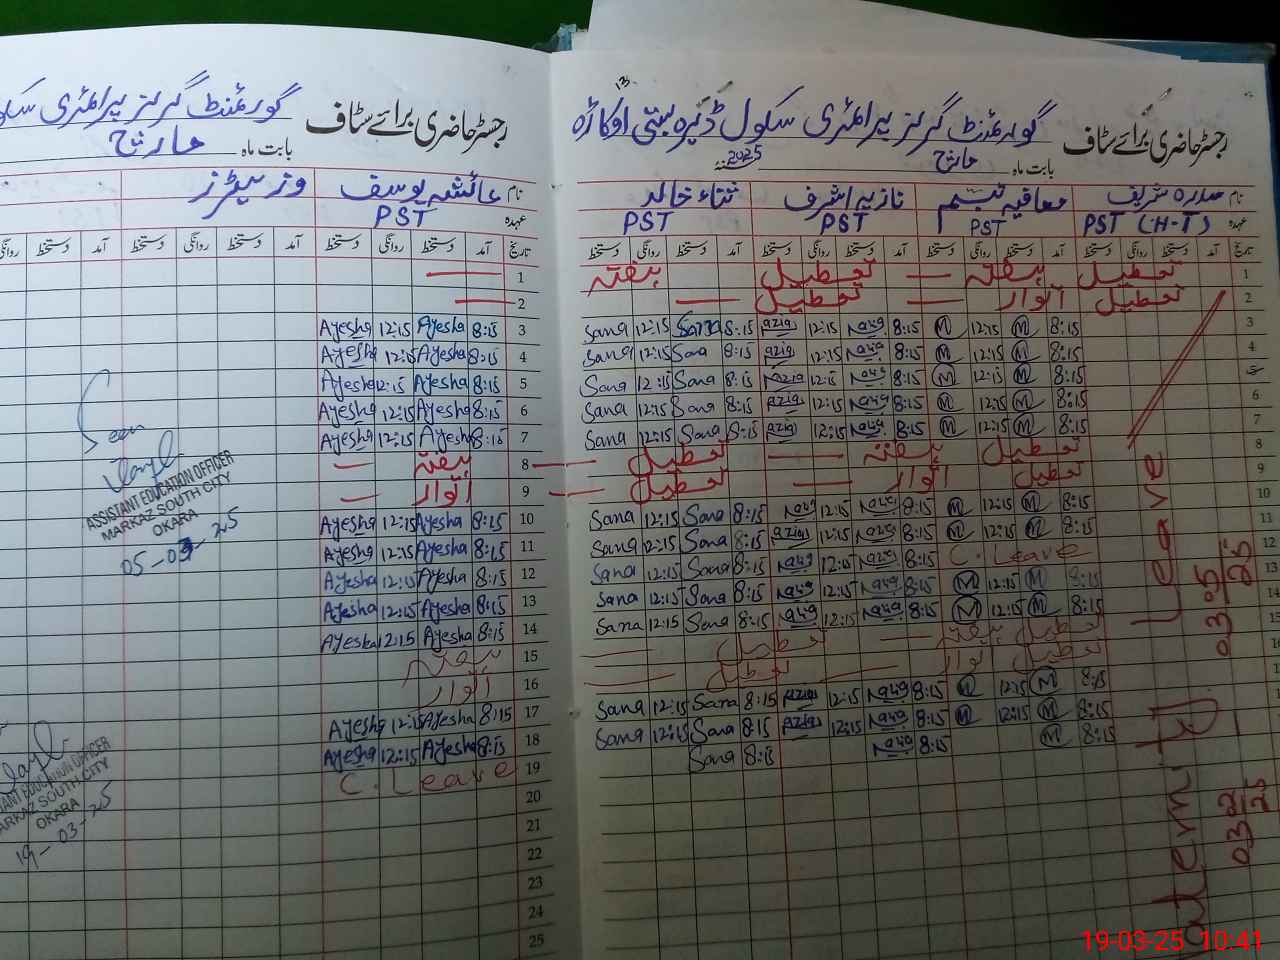 رجسٹر حاضری برائے سٹاف گورنمنٹ گرلز پرائمری سکول ڈیرہ بستی اوکاڑہ
بابت ماہ مارچ 2025ء
نام صدرہ شریف معافیہ تبسم نازیہ اشرف ثناء خالد
عہدہ PST (H-T) PST PST PST
تاریخ آمد دستخط روانگی دستخط آمد دستخط روانگی دستخط آمد دستخط روانگی دستخط آمد دستخط روانگی دستخط
1 تعطیل ہفتہ — تعطیل ہفتہ
2 تعطیل اتوار — تعطیل —
3 8:15 M 12:15 M 8:15 Nazia 12:15 Nazia 8:15 Sana 12:15 Sana
4 8:15 M 12:15 M 8:15 Nazia 12:15 Nazia 8:15 Sana 12:15 Sana
5 8:15 M 12:15 M 8:15 Nazia 12:15 Nazia 8:15 Sana 12:15 Sana
6 8:15 M 12:15 M 8:15 Nazia 12:15 Nazia 8:15 Sana 12:15 Sana
7 8:15 M 12:15 M 8:15 Nazia 12:15 Nazia 8:15 Sana 12:15 Sana
8 تعطیل ہفتہ — تعطیل —
9 تعطیل اتوار — تعطیل —
10 8:15 M 12:15 M 8:15 Nazia 12:15 Nazia 8:15 Sana 12:15 Sana
11 8:15 M 12:15 M 8:15 Nazia 12:15 Nazia 8:15 Sana 12:15 Sana
12 C. Leave 8:15 Nazia 12:15 Nazia 8:15 Sana 12:15 Sana
13 8:15 M 12:15 M 8:15 Nazia 12:15 Nazia 8:15 Sana 12:15 Sana
14 8:15 M 12:15 M 8:15 Nazia 12:15 Nazia 8:15 Sana 12:15 Sana
15 تعطیل ہفتہ — تعطیل —
16 تعطیل اتوار — تعطیل —
17 8:15 M 12:15 M 8:15 Nazia 12:15 Nazia 8:15 Sana 12:15 Sana
18 8:15 M 12:15 M 8:15 Nazia 12:15 Nazia 8:15 Sana 12:15 Sana
8:15 M 8:15 Nazia 8:15 Sana
Leave
03
25
03
25
رجسٹر حاضری برائے سٹاف گورنمنٹ گرلز پرائمری
بابت ماہ مارچ
نام عائشہ یوسف وزیٹرز
عہدہ PST
تاریخ آمد دستخط روانگی دستخط آمد دستخط روانگی دستخط آمد دستخط
1 —
2 —
3 8:15 Ayesha 12:15 Ayesha
4 8:15 Ayesha 12:15 Ayesha
5 8:15 Ayesha 12:15 Ayesha
6 8:15 Ayesha 12:15 Ayesha
7 8:15 Ayesha 12:15 Ayesha
8 ہفتہ —
9 اتوار —
10 8:15 Ayesha 12:15 Ayesha
11 8:15 Ayesha 12:15 Ayesha
12 8:15 Ayesha 12:15 Ayesha
13 8:15 Ayesha 12:15 Ayesha
14 8:15 Ayesha 12:15 Ayesha
15 ہفتہ
16 اتوار
17 8:15 Ayesha 12:15 Ayesha
18 8:15 Ayesha 12:15 Ayesha
19 C. Leave
20
21
22
23
24
25
Seen
ASSISTANT EDUCATION OFFICER
MARKAZ SOUTH CITY
OKARA
05-03-25
EDUCATION OFFICER
SOUTH CITY
OKARA
19-03-25
19-03-25 10:41